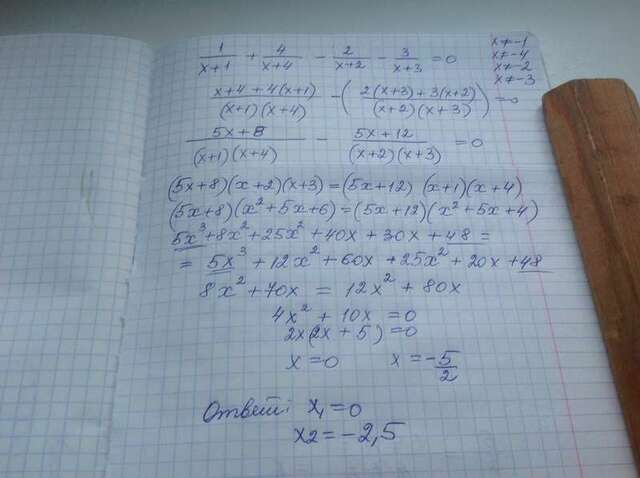 1/(x+1) + 4/(x+4) - 2/(x+2) - 3/(x+3) = 0
x≠-1
x≠-4
x≠-2
x≠-3
(x+4+4(x+1))/((x+1)(x+4)) - ((2(x+3)+3(x+2))/((x+2)(x+3))) = 0
(5x+8)/((x+1)(x+4)) - (5x+12)/((x+2)(x+3)) = 0
(5x+8)(x+2)(x+3)=(5x+12)(x+1)(x+4)
(5x+8)(x²+5x+6)=(5x+12)(x²+5x+4)
5x³+8x²+25x²+40x+30x+48=
=5x³+12x²+60x+25x²+20x+48
8x²+70x=12x²+80x
4x²+10x=0
2x(2x+5)=0
x=0 x=-5/2
Ответ: x₁=0
x2=-2,5